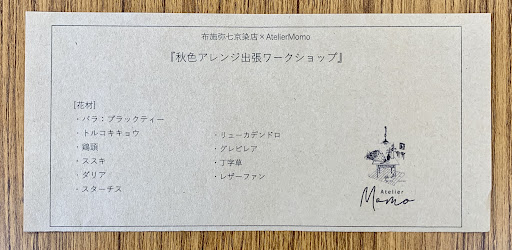 布施弥七京染店×AtelierMomo
『秋色アレンジ出張ワークショップ』
[花材]
・バラ：ブラックティー
・トルコキキョウ
・鶏頭
・ススキ
・ダリア
・スターチス
・リューカデンドロ
・グレビレア
・丁字草
・レザーファン
Atelier
Momo